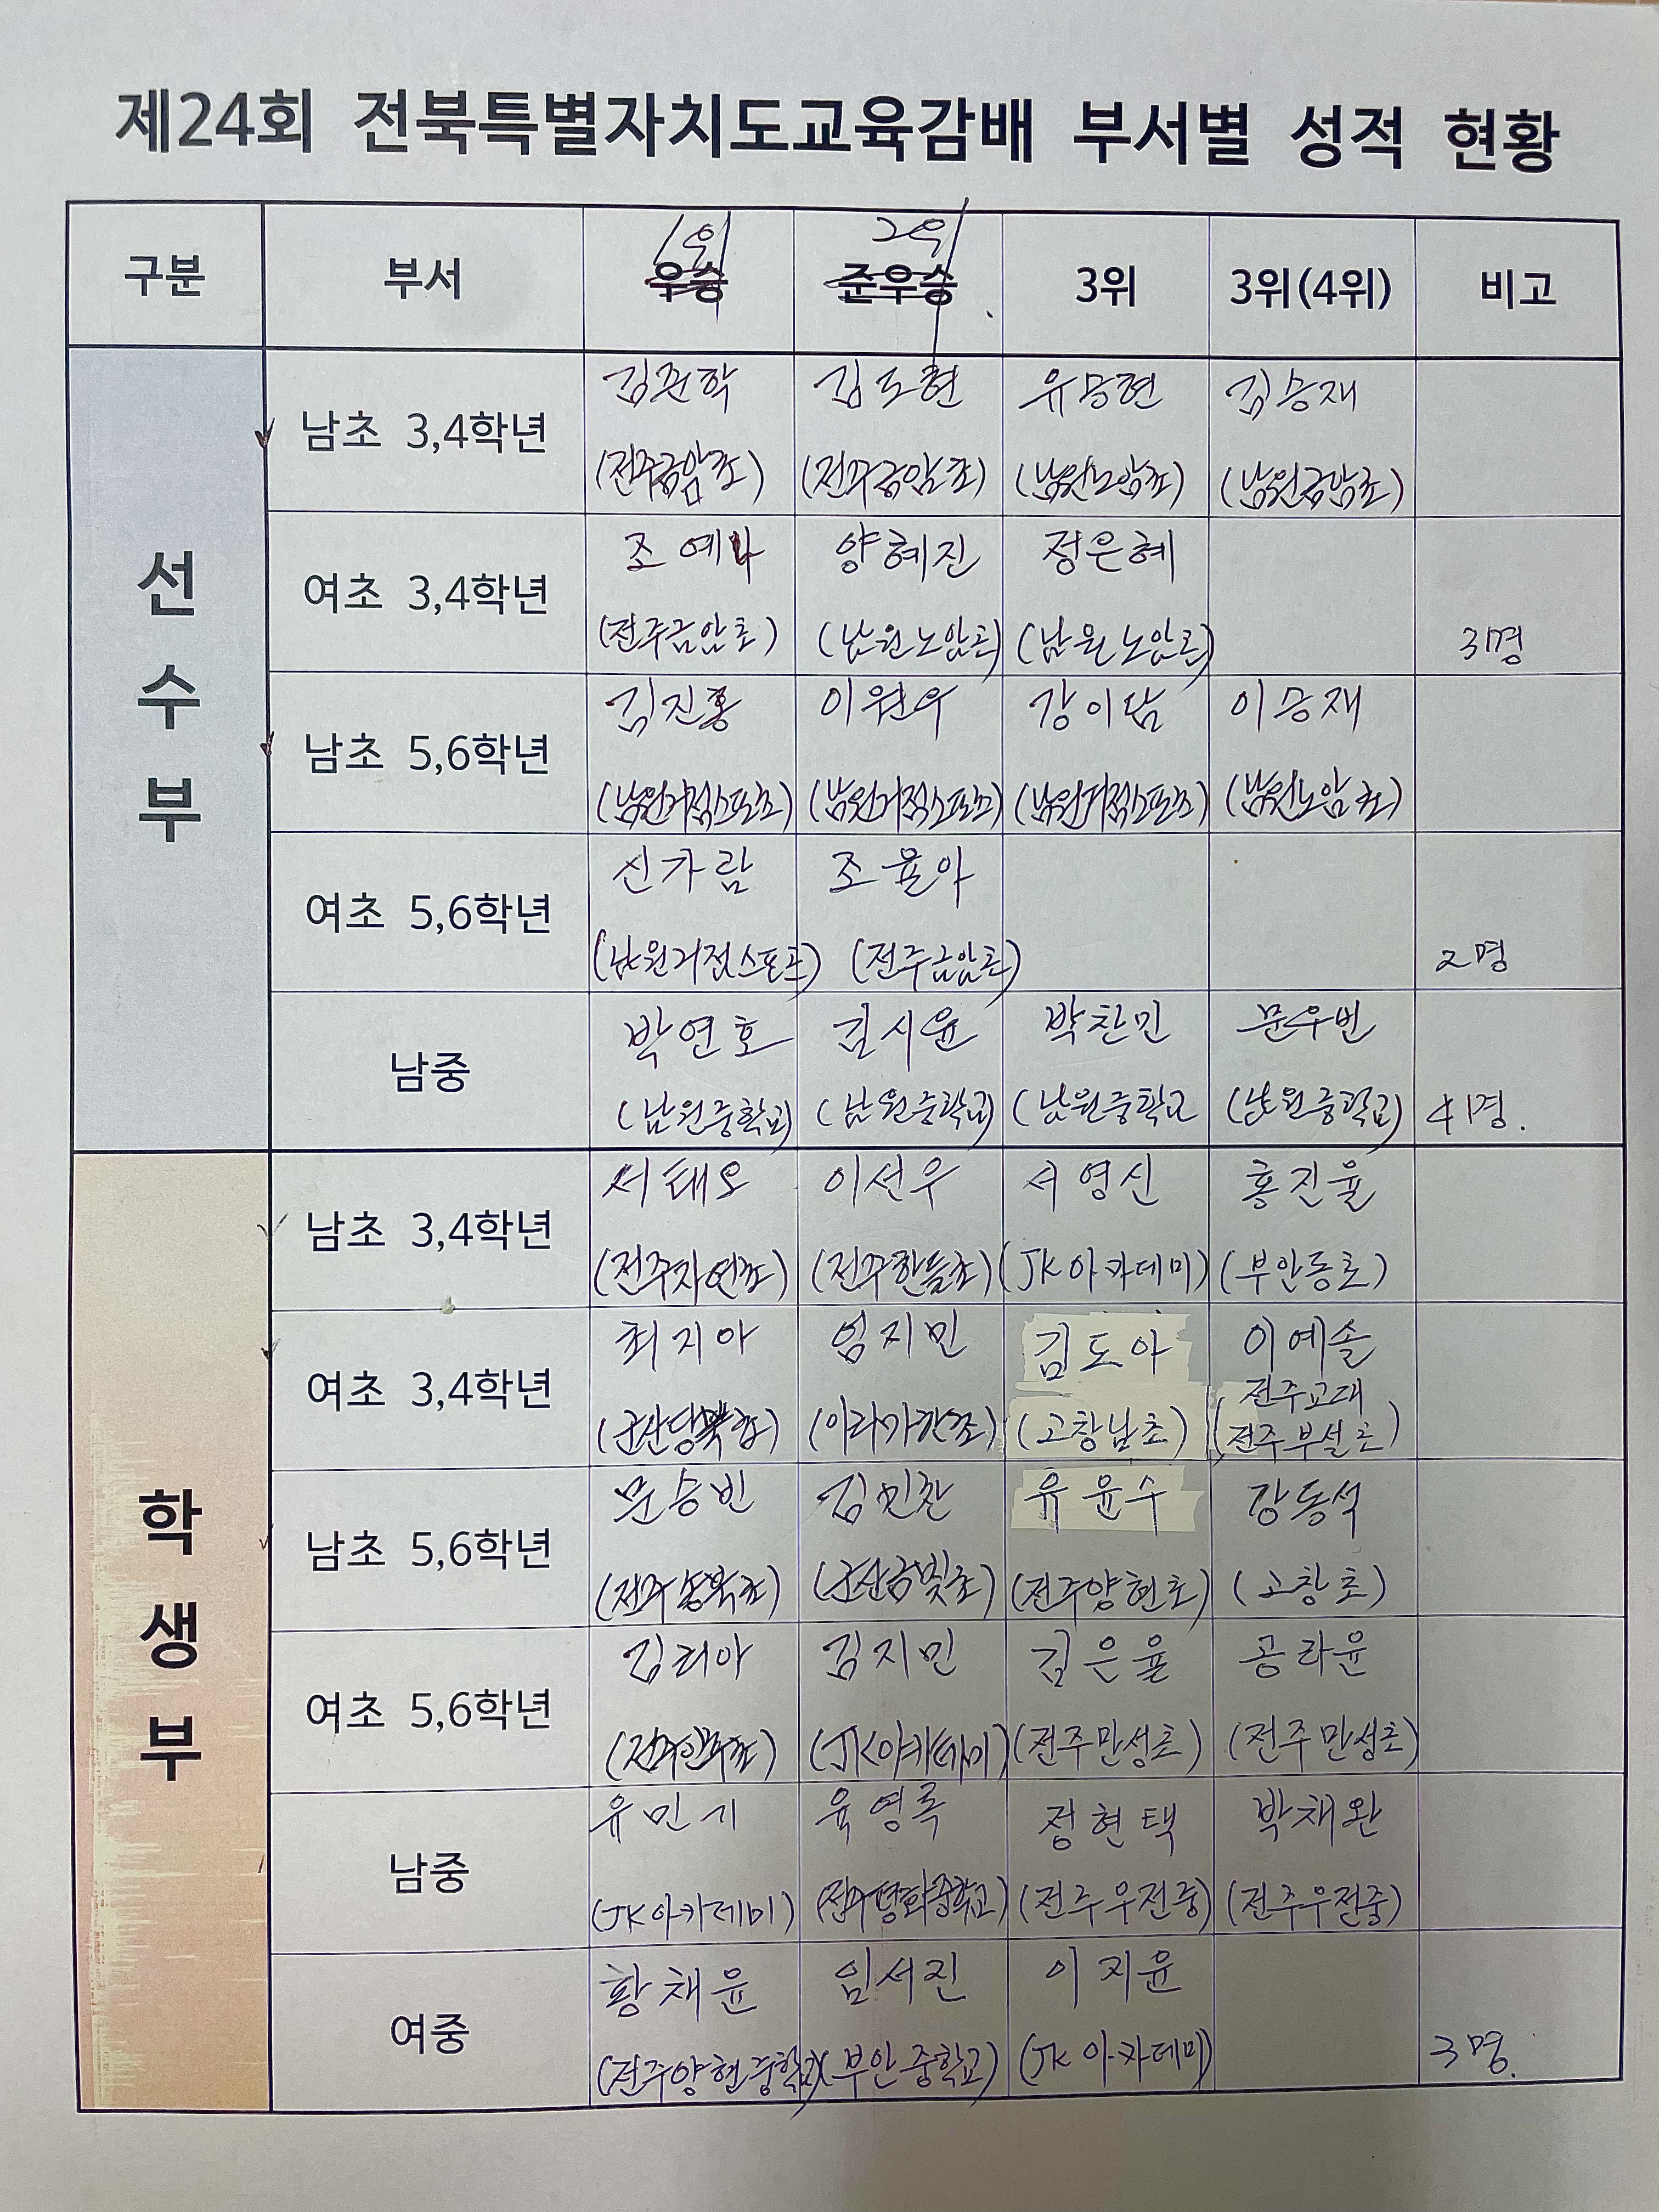 제24회 전북특별자치도교육감배 부서별 성적 현황
구분 부서 1위 우승 2위 준우승 3위 3위(4위) 비고
선수부
남초 3,4학년 김준학 김도현 유승현 김승재
(전주금암초) (전주금암초) (남원노암초) (남원금암초)
여초 3,4학년 조예나 양혜진 정은혜
(전주금암초) (남원노암초) (남원노암초) 3명
남초 5,6학년 김진홍 이원우 강이담 이승재
(남원거점스포츠) (남원거점스포츠) (남원거점스포츠) (남원노암초)
여초 5,6학년 신가람 조율아
(남원거점스포츠) (전주금암초) 2명
남중 박연호 김시윤 박찬민 문우빈
(남원중학교) (남원중학교) (남원중학교 (남원중학교) 4명.
학생부
남초 3,4학년 서태오 이선우 서영신 홍진율
(전주자연초) (전주한들초) (JK아카데미) (부안동초)
여초 3,4학년 최지아 엄지민 김도아 이예솔
(고창남초) (전주교대
전주부설초)
남초 5,6학년 문승빈 김민찬 유윤수 강동석
(군산금빛초) (전주양현초) (고창초)
여초 5,6학년 김리아 김지민 김은율 공라윤
(JK아카데미) (전주만성초) (전주만성초)
남중 유민기 육영록 정현택 박채완
(JK아카데미) (전주평화중학교) (전주우전중) (전주우전중)
여중 황채윤 임서진 이지윤
(전주양현중학교) (부안중학교) (JK아카데미) 3명.